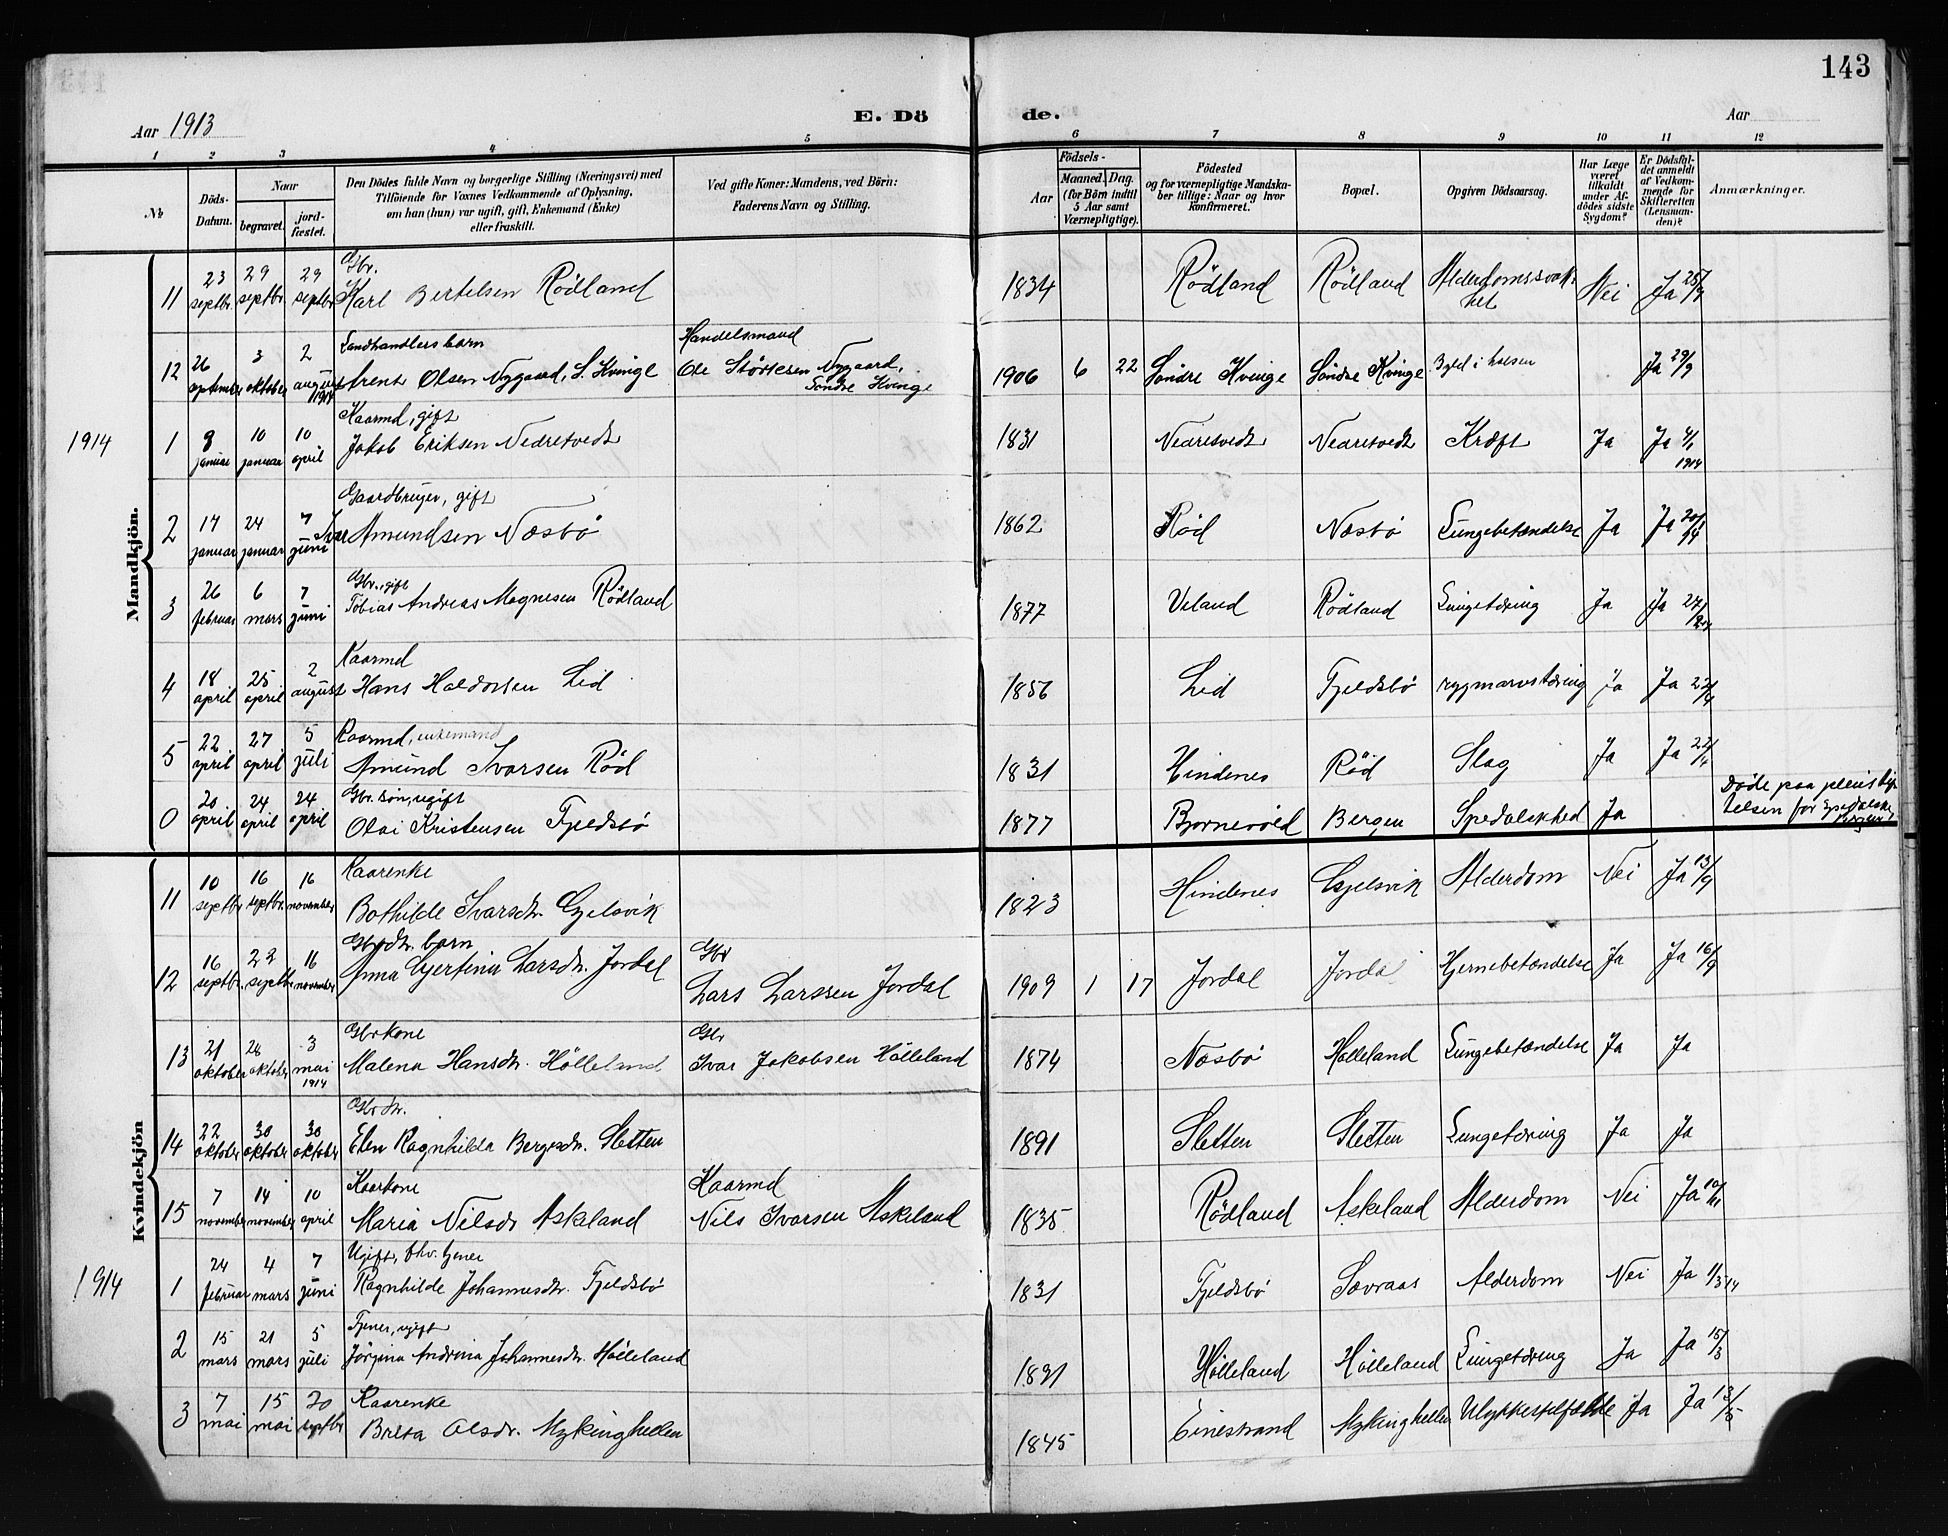 143
Aar 1913
E. Dö
de.
Aar
1 2 3 4 5 6 7 8 9 10 11 12
No
Döds-Datum.
Naar
begravet.
jord-fæstet.
Den Dödes fulde Navn og borgerlige Stilling (Næringsvei) med
Tilföiende for Voxnes Vedkommende af Oplysning,
om han (hun) var ugift, gift, Enkemand (Enke)
eller fraskilt.
Ved gifte Koner: Mandens, ved Börn:
Faderens Navn og Stilling.
Födsels-
Aar
Maaned. Dag.
(for Börn indtil
5 Aar samt
Værnepligtige).
Födested
og for værnepligtige Mandska-
ber tillige: Naar og hvor
konfirmeret.
Bopæl.
Opgiven Dödsaarsag.
Har Læge
været
tilkaldt
under Af-
dödes sidste
Sygdom?
Er Dödsfal-
det anmeldt
af Vedkom-
mende for
Skifteretten
(Lensman-
den)?
Anmærkninger.
Mandkjön.
11 23 septbr. 29 septbr. 29 septbr. Gbr.
Karl Bertelsen Rödland 1834 Rödland Rödland Nei Ja 25/9
12 26 3 oktober 2 august 1914 Landhandlers barn
Arent Olsen Nygaard, S. Kvinge
Handelsmand
Ole Nygaard,
Söndre Kvinge
1906 6 22 Söndre Kvinge Söndre Kvinge Byld i halsen Ja 29/9
1914
1 8 januar 10 januar 10 april Kaarmd, gift
Jakob Eriksen Nedretvedt 1831 Nedretvedt Nedretvedt Kræft Ja Ja 1914
2 17 januar 24 januar 7 juni Gaardbruger, gift
Ivar Amundsen Næsbö 1862 Röd Næsbö Lungebetændelse Ja Ja 20/1 14
3 26 februar 6 mars 7 juni Gbr., gift
Tobias Andreas Magnesen Rödland 1877 Veland Rödland Lungetæring Ja Ja 27/2 14
4 18 april 25 april 2 august Kaarmd
Hans Haldorsen Lid 1856 Lid Fjeldsbö rygmarvstæring Ja Ja 22/4
5 22 april 27 april 5 juli Kaarmd, enkemand
Amund Ivarsen Röd 1831 Hindenes Röd Slag Ja Ja 22/4
0 20 april 24 april 24 april Gbr. søn, ugift
Olai Kristensen Fjeldsbö 1877 Bjørnevold Bergen Spedalskhed Ja
Döde paa pleiestif-
telsen for Spedalske
Bergen
Kvindekjön
11 10 septbr 16 septbr. 16 november Kaarenke
Bothilde Ivarsdr. Gjelsvik 1823 Hindenes Gjelsvik Alderdom Nei Ja 13/9
12 16 septbr. 22 septbr. 16 november Gbrdtr. barn
Anna Gjertina Larsdr. Jordal
Gbr
Lars Larssen Jordal
1909 1 17 Jordal Jordal Hjernebetændelse Ja Ja 16/9
13 21 oktober 28 oktober 3 mai 1914 Gbrkone
Malena Hansdr. Hölleland
Gbr
Ivar Jakobsen Hölleland
1874 Næsbö Hølleland Lungebetændelse Ja Ja
14 22 oktober 30 oktober 30 oktober Gbrdtr.
Elen Ragnhilda Børgesdr. Sletten 1891 Sletten Sletten Lungetæring Ja Ja
15 7 november 14 november 10 april Kaarkone
Maria Nilsdr Askeland
Kaarmd
Nils Ivarsen Askeland
1835 Rödland Askeland Alderdom Nei Ja 10/11
1914
1 24 februar 4 mars 7 juni Ugift, fhv. tjener
Ragnhilde Johannesdr. Fjeldsbö 1831 Fjeldsbö Sævraas Alderdom Nei Ja 11/3 14
2 15 mars 21 mars 5 juli Tjener, ugift
Jörgina Andrina Johannesdr. Hölleland 1891 Hölleland Hölleland Lungetæring Ja Ja 15/3
3 7 mai 15 mai 20 septbr Kaarenke
Brita Olsdr. Mykinghellen 1845 Einestrand Mykinghellen Ulykkestilfælde Ja Ja 13/5